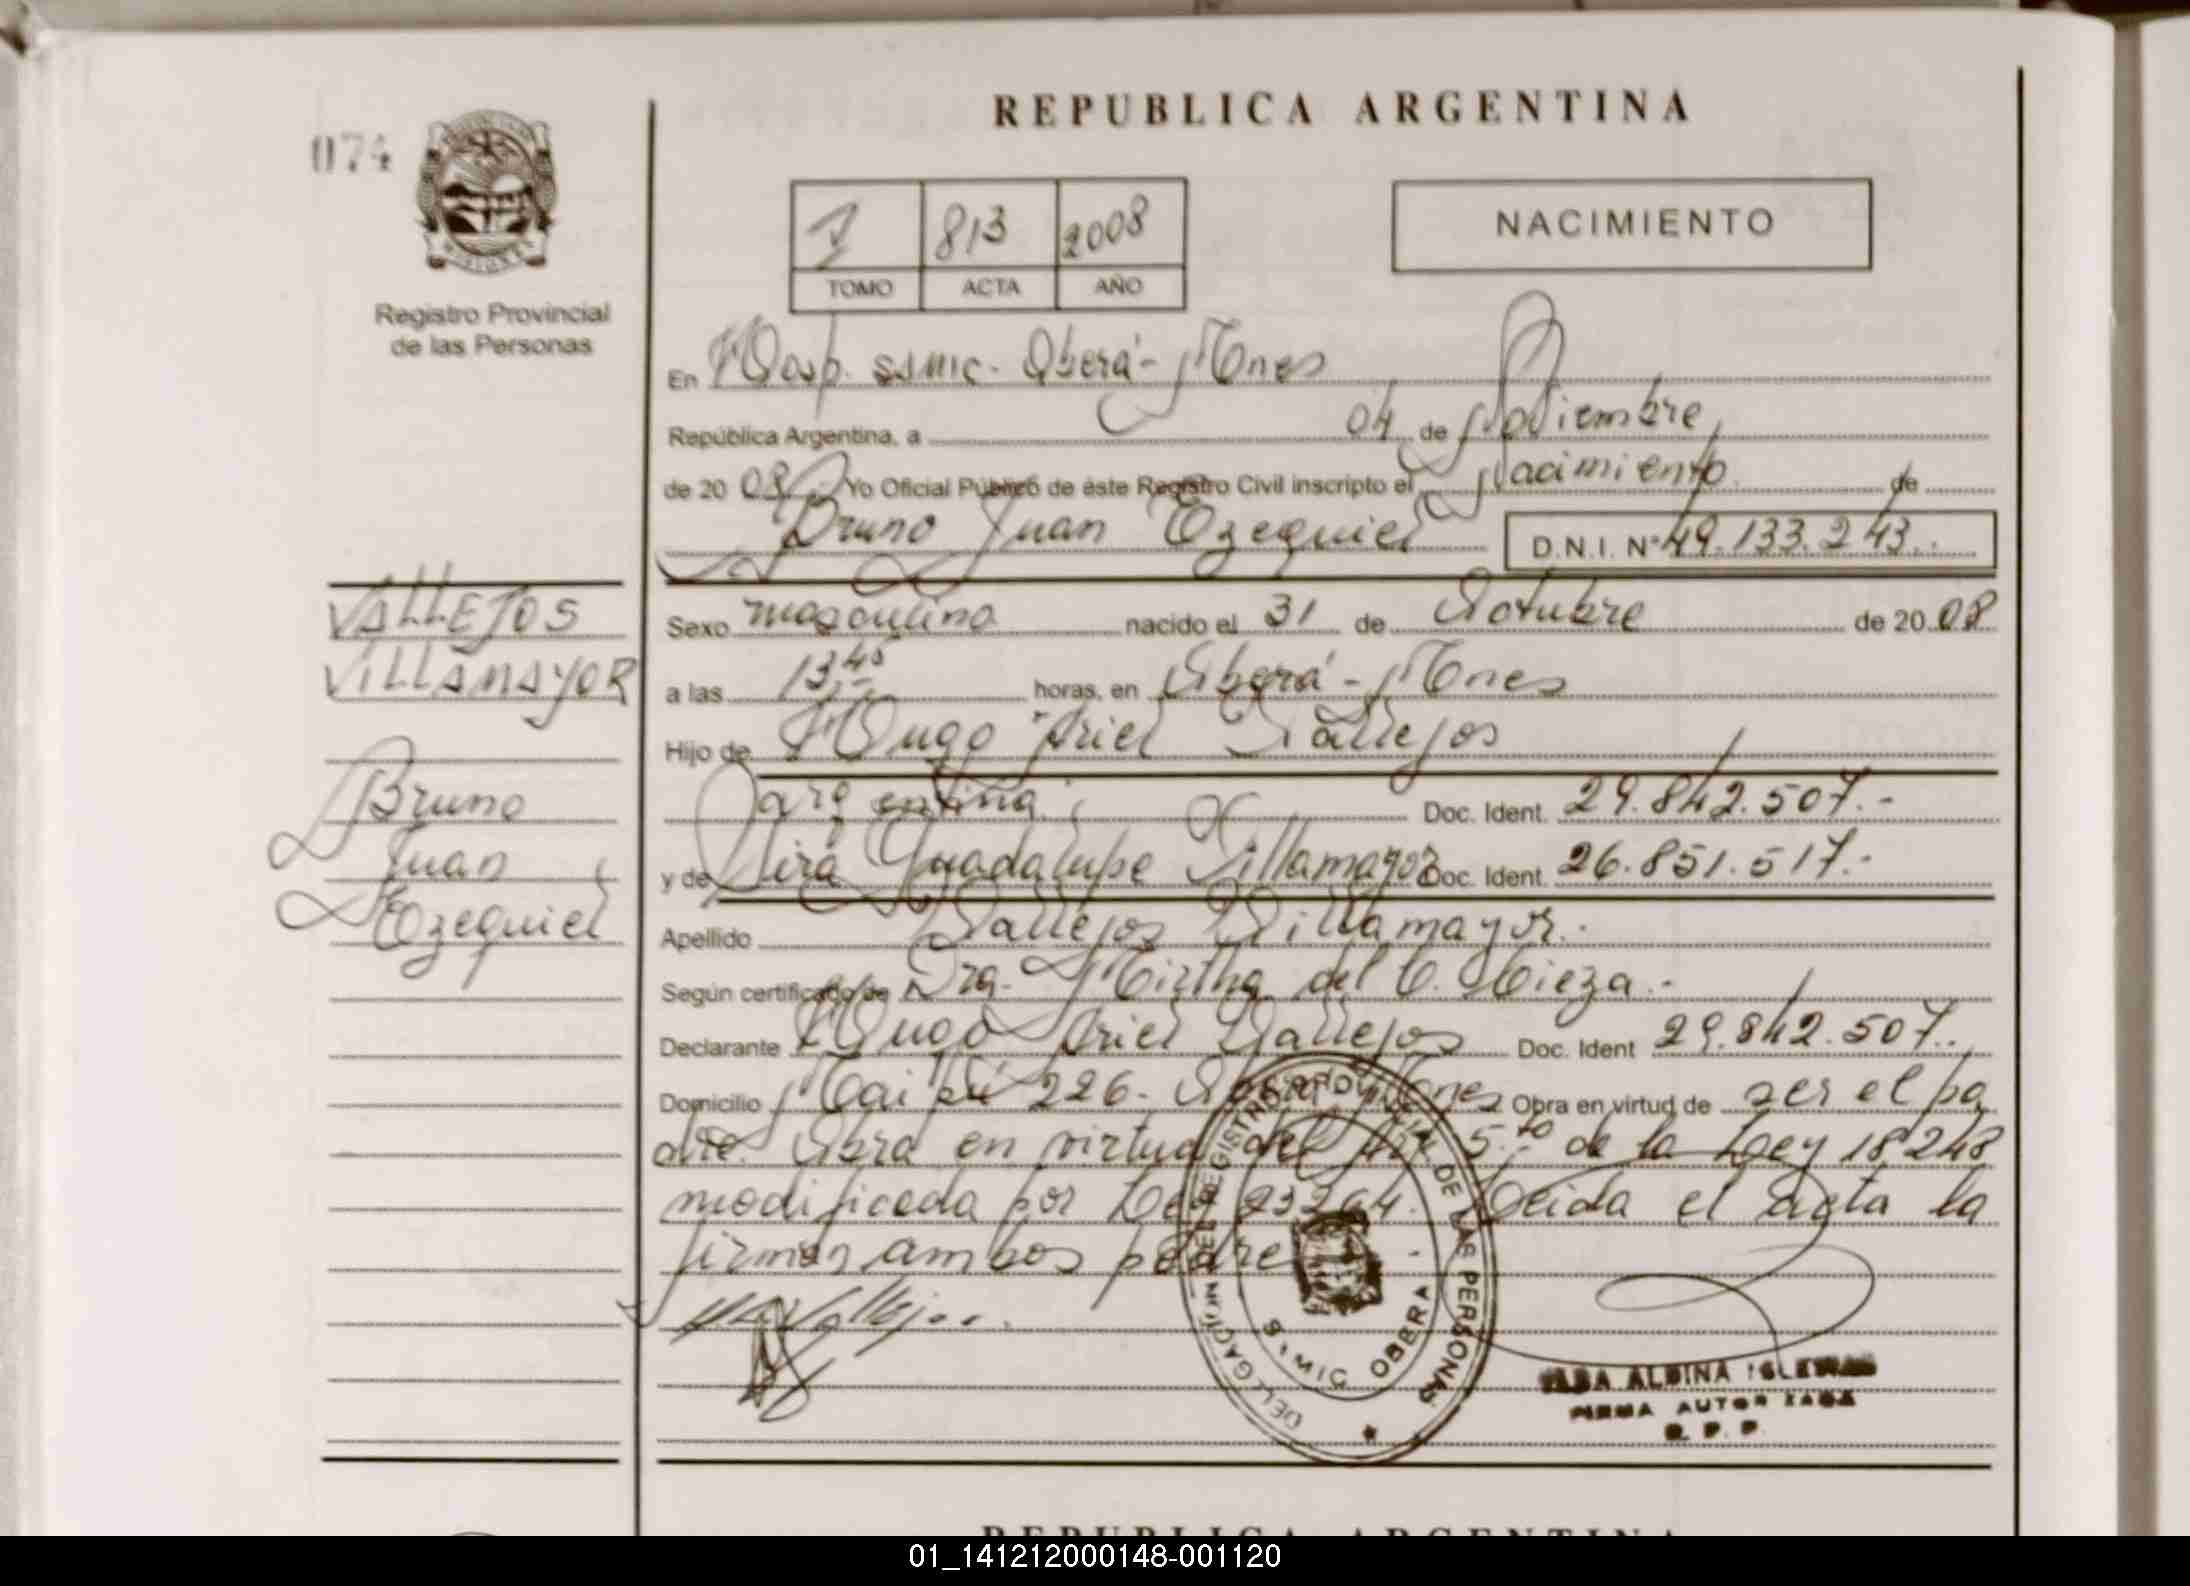 REPUBLICA ARGENTINA
074
1 813 2008
TOMO ACTA AÑO
NACIMIENTO
Registro Provincial
de las Personas
En Hosp. SSMIC. Oberá - Mnes
República Argentina, a 04 de Noviembre
de 2008 Yo Oficial Público de éste Registro Civil inscripto el Nacimiento de
Bruno Juan Ezequiel D.N.I. N° 49.133.243.
VALLEJOS
VILLAMAYOR
Bruno
Juan
Ezequiel
Sexo masculino nacido el 31 de Octubre de 2008
a las 13 45 horas, en Oberá - Mnes
Hijo de Hugo Ariel Vallejos
argentina Doc. Ident. 29.842.507.-
y de Guadalupe Villamayor Doc. Ident. 26.851.517.-
Apellido Vallejos Villamayor.-
Según certificado de Dra. Mirtha del C. Mieza.-
Declarante Hugo Ariel Vallejos Doc. Ident 29.842.507.
Domicilio Maipú 226 - Oberá Mnes Obra en virtud de ser el pa
dre. Obra en virtud del Art 5.to de la Ley 18248
modificada por Ley 23264. Leida el acta la
firman ambos padres
DELEGACION DEL REGISTRO PROV. DE LAS PERSONAS
SAMIC OBERA
ALBA ALBINA IGLESIAS
FIRMA AUTORIZADA
R. P. P.
REPUBLICA ARGENTINA
01_141212000148-001120